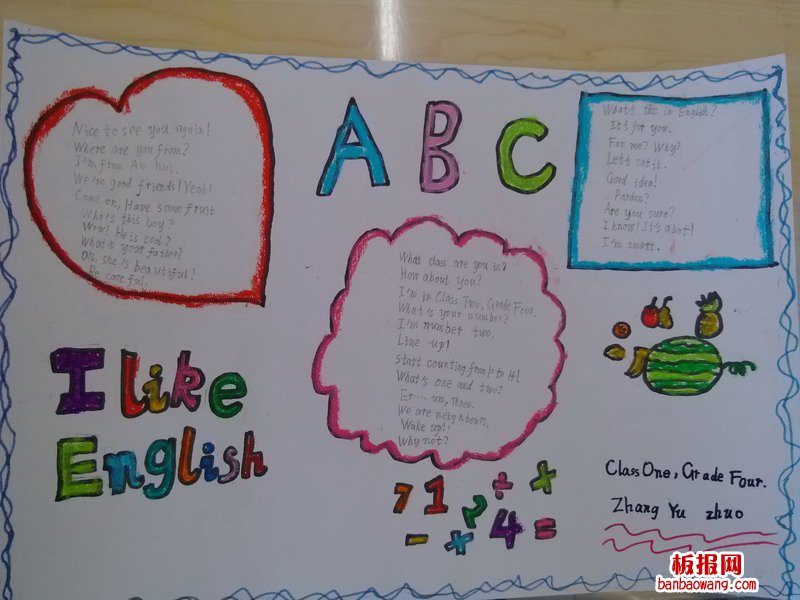 Nice to see you again!
Where are you from?
I'm from An hui.
We're good friends! Yeah!
Come on, Have some fruit
Who's this boy?
Wow! He is cool?
What's your father?
Oh, she is beautiful!
Be careful.
A B C
What's this in English?
It's for you.
For me? Why?
Let's eat it.
Good idea!
Pardon?
Are you sure?
I know! It's a boat!
I'm smart.
What class are you in?
How about you?
I'm in Class Two, Grade Four.
What's your number?
I'm number two.
Line up!
Start counting from 1 to
What's one and two?
Er... um, three.
We are neighbours.
Wake up!
Why not?
I like
English
7 1 2 ÷ +
- * 4 =
Class One, Grade Four.
Zhang Yu zhuo
板报网
banbaowang.com